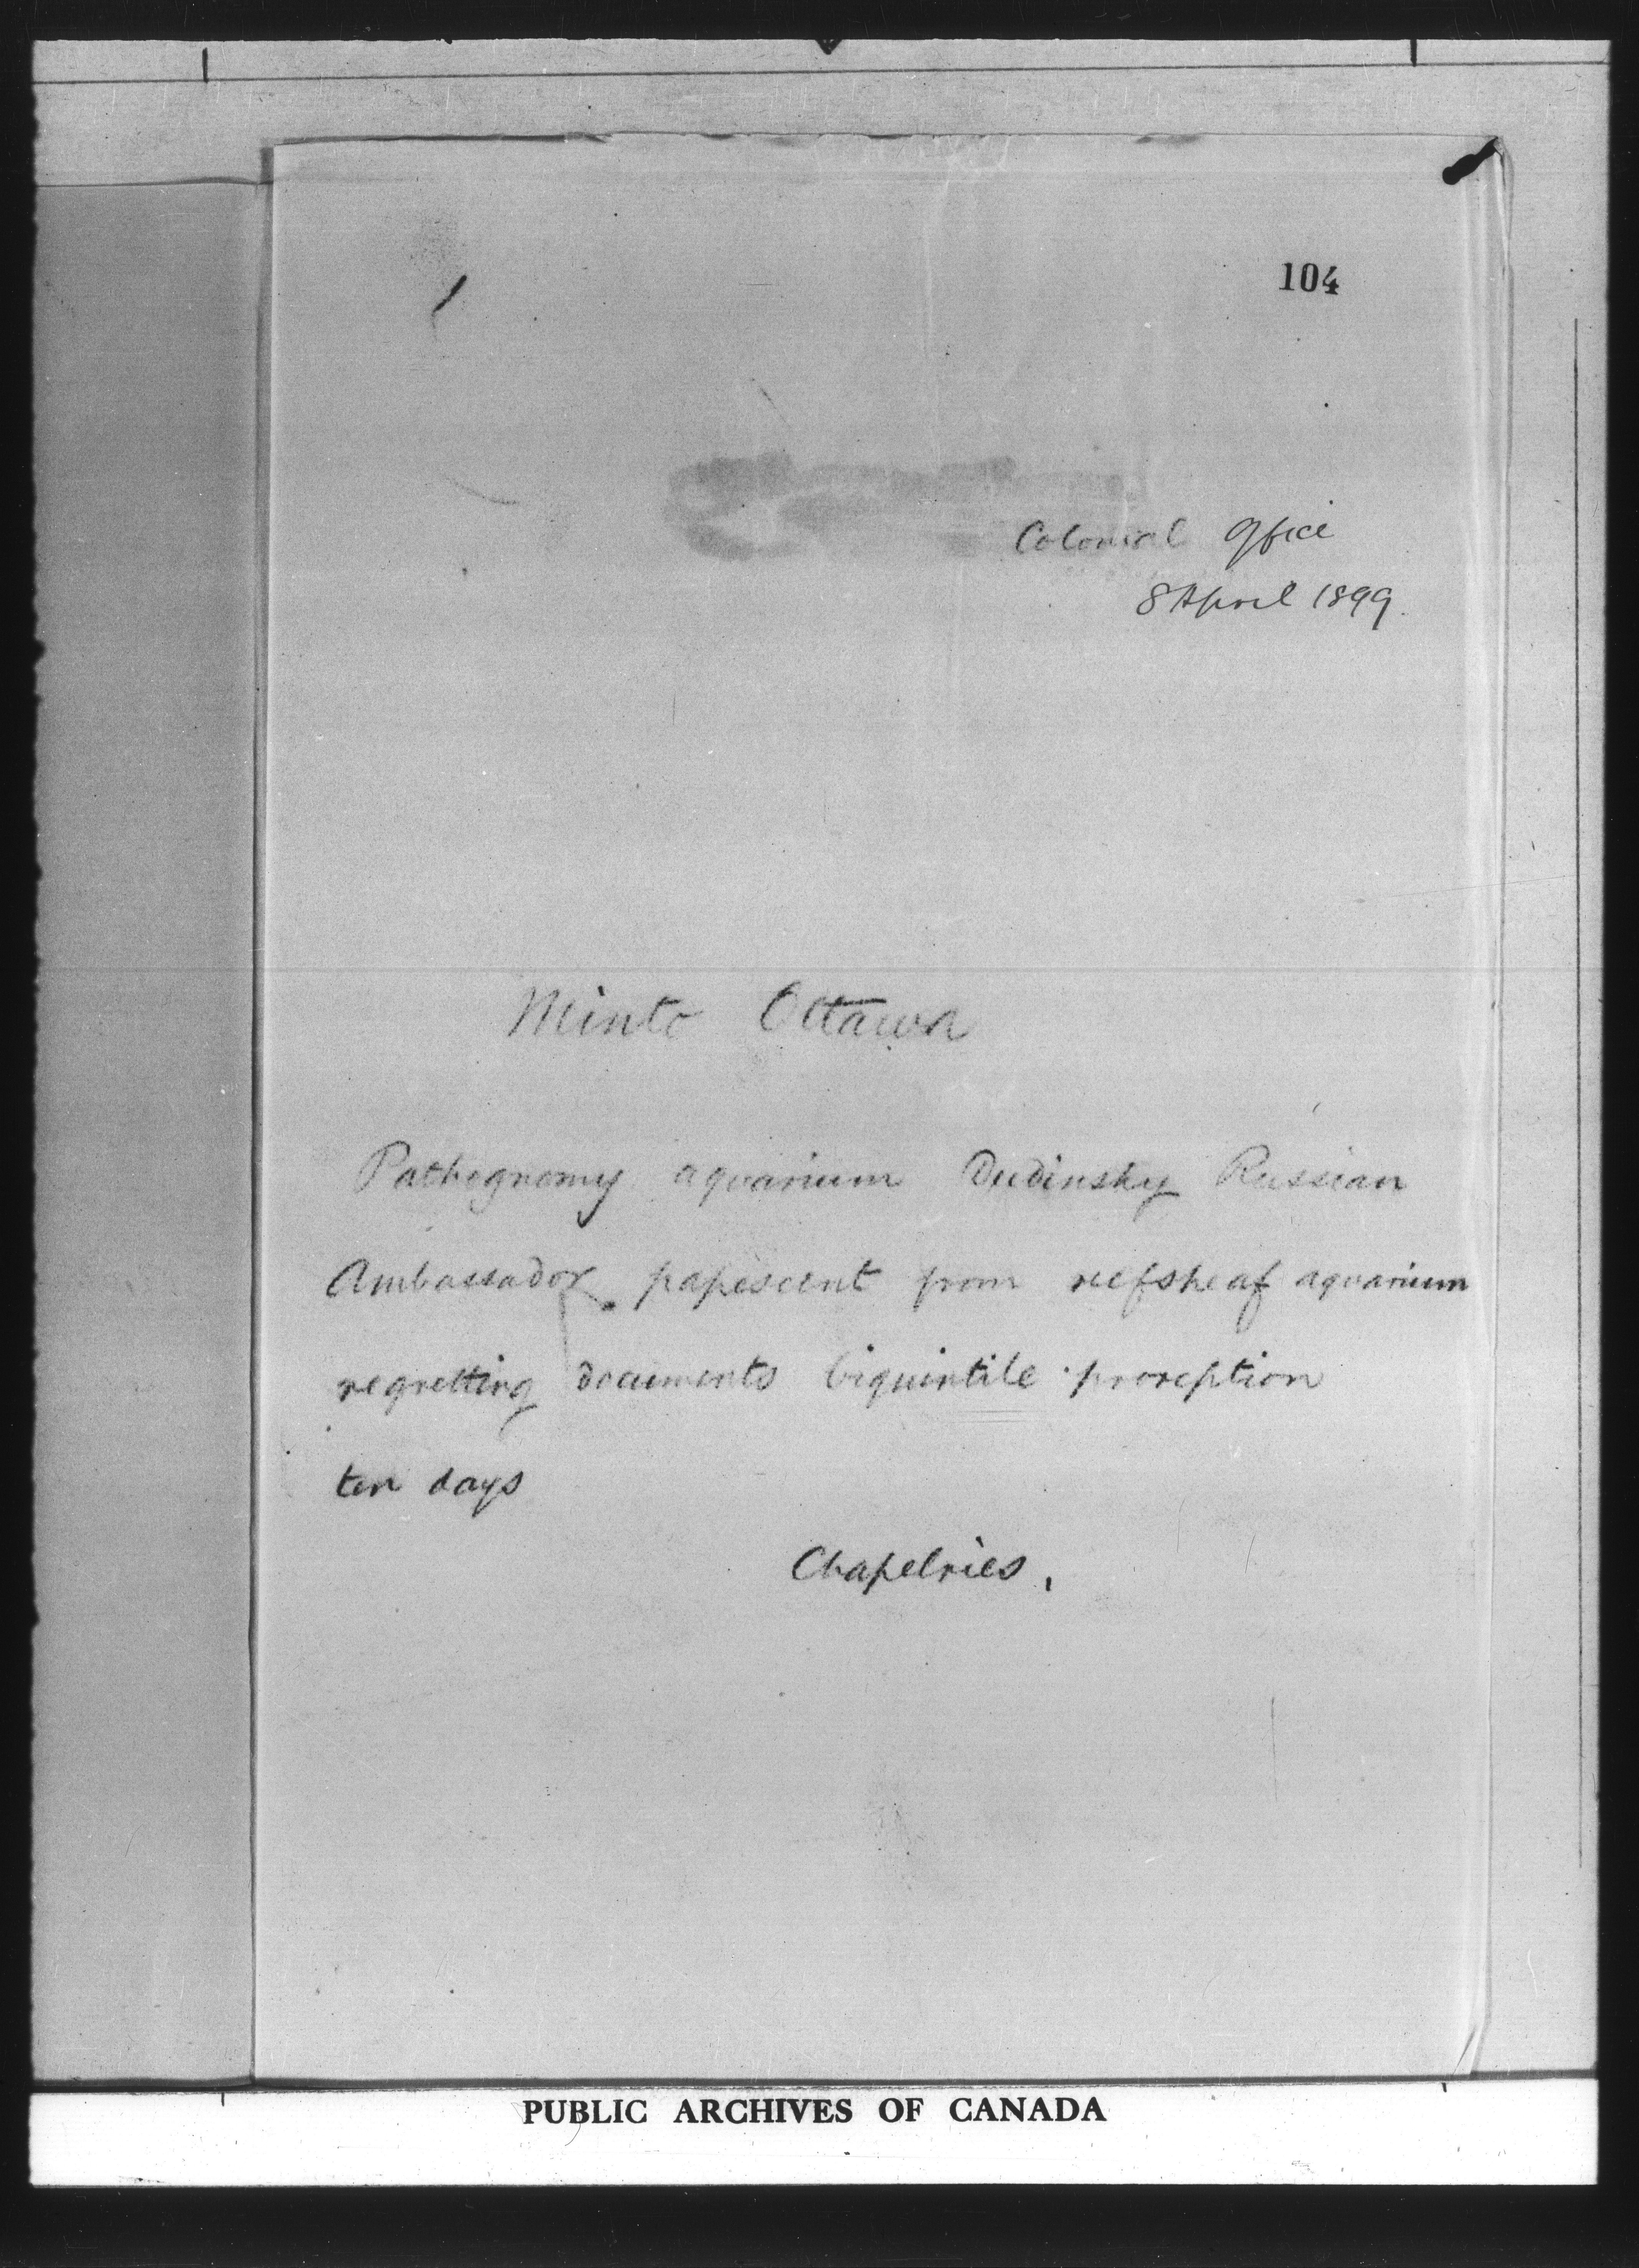 104
Colonial Office
8 April 1899.
Minto Ottawa
Pathognomy aquarium Dudinsky Russian
Ambassador papescent from reefsheaf aquarium
regretting documents biquintile proreption
ten days
Chapelries.
PUBLIC ARCHIVES OF CANADA